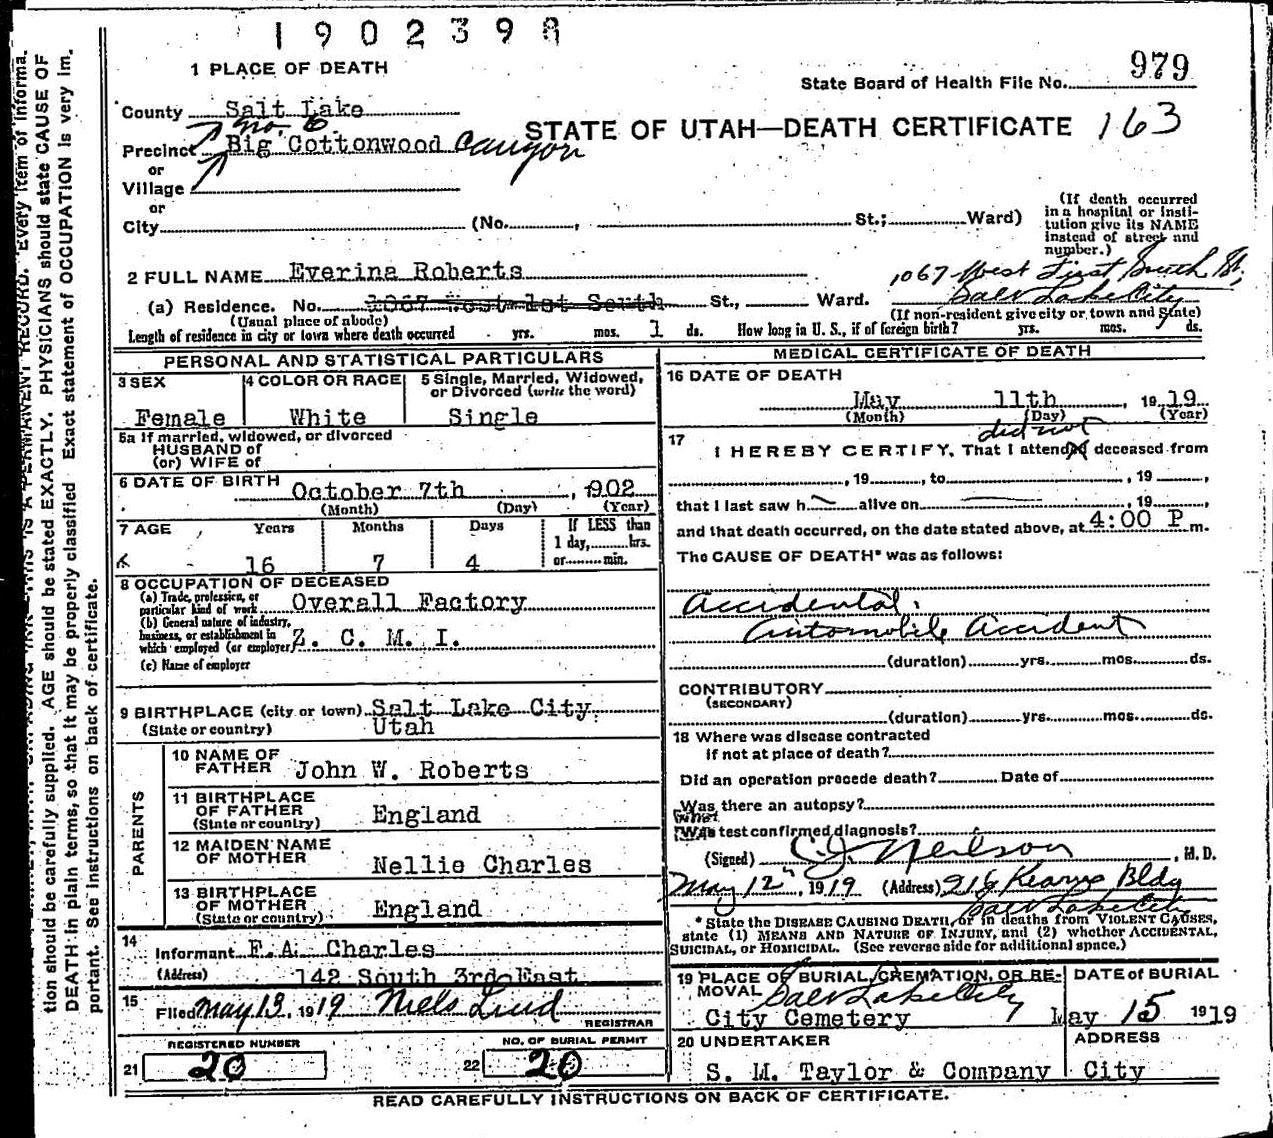 1902398
1 PLACE OF DEATH
State Board of Health File No. 979
County Salt Lake
no. 6
STATE OF UTAH—DEATH CERTIFICATE 163
Precinct Big Cottonwood Canyon
or
Village
or
City (No. , St.; Ward)
(If death occurred
in a hospital or insti-
tution give its NAME
instead of street and
number.)
2 FULL NAME Everina Roberts
1067 West First South St.
(a) Residence. No. 1067 West 1st South St., Ward. Salt Lake City
(Usual place of abode) (If non-resident give city or town and State)
Length of residence in city or town where death occurred yrs. mos. 1 ds. How long in U. S., if of foreign birth? yrs. mos. ds.
PERSONAL AND STATISTICAL PARTICULARS
3 SEX
Female
4 COLOR OR RACE
White
5 Single, Married, Widowed,
or Divorced (write the word)
Single
5a If married, widowed, or divorced
HUSBAND of
(or) WIFE of
6 DATE OF BIRTH October 7th , 1902
(Month) (Day) (Year)
7 AGE Years Months Days If LESS than
1 day, hrs.
16 7 4 or min.
8 OCCUPATION OF DECEASED
(a) Trade, profession, or
particular kind of work Overall Factory
(b) General nature of industry,
business, or establishment in
which employed (or employer) Z. C. M. I.
(c) Name of employer
9 BIRTHPLACE (city or town) Salt Lake City,
(State or country) Utah
PARENTS
10 NAME OF
FATHER John W. Roberts
11 BIRTHPLACE
OF FATHER England
(State or country)
12 MAIDEN NAME
OF MOTHER Nellie Charles
13 BIRTHPLACE
OF MOTHER England
(State or country)
14 Informant E. A. Charles
(Address) 142 South 3rd East
15 Filed May 13, 1919 Niels Lind
REGISTRAR
REGISTERED NUMBER
21 20
NO. OF BURIAL PERMIT
22 20
MEDICAL CERTIFICATE OF DEATH
16 DATE OF DEATH
May 11th , 1919
(Month) (Day) (Year)
did not
17 I HEREBY CERTIFY, That I attended deceased from
, 19 , to , 19 ,
that I last saw h alive on , 19 ,
and that death occurred, on the date stated above, at 4:00 P m.
The CAUSE OF DEATH* was as follows:
Accidental.
Automobile Accident
(duration) yrs. mos. ds.
CONTRIBUTORY
(SECONDARY)
(duration) yrs. mos. ds.
18 Where was disease contracted
if not at place of death?
Did an operation precede death? Date of
Was there an autopsy?
What
Was test confirmed diagnosis?
(Signed) C. J. Neilson , M. D.
May 12th, 1919 (Address) 216 Kearns Bldg
Salt Lake City
* State the DISEASE CAUSING DEATH, or in deaths from VIOLENT CAUSES,
state (1) MEANS AND NATURE OF INJURY, and (2) whether ACCIDENTAL,
SUICIDAL, or HOMICIDAL. (See reverse side for additional space.)
19 PLACE OF BURIAL, CREMATION, OR RE-
MOVAL Salt Lake City
City Cemetery
DATE of BURIAL
May 15 1919
20 UNDERTAKER
S. M. Taylor & Company
ADDRESS
City
READ CAREFULLY INSTRUCTIONS ON BACK OF CERTIFICATE.
IS A PERMANENT RECORD. Every item of informa-
tion should be carefully supplied. AGE should be stated EXACTLY. PHYSICIANS should state CAUSE OF
DEATH in plain terms, so that it may be properly classified. Exact statement of OCCUPATION is very im-
portant. See instructions on back of certificate.